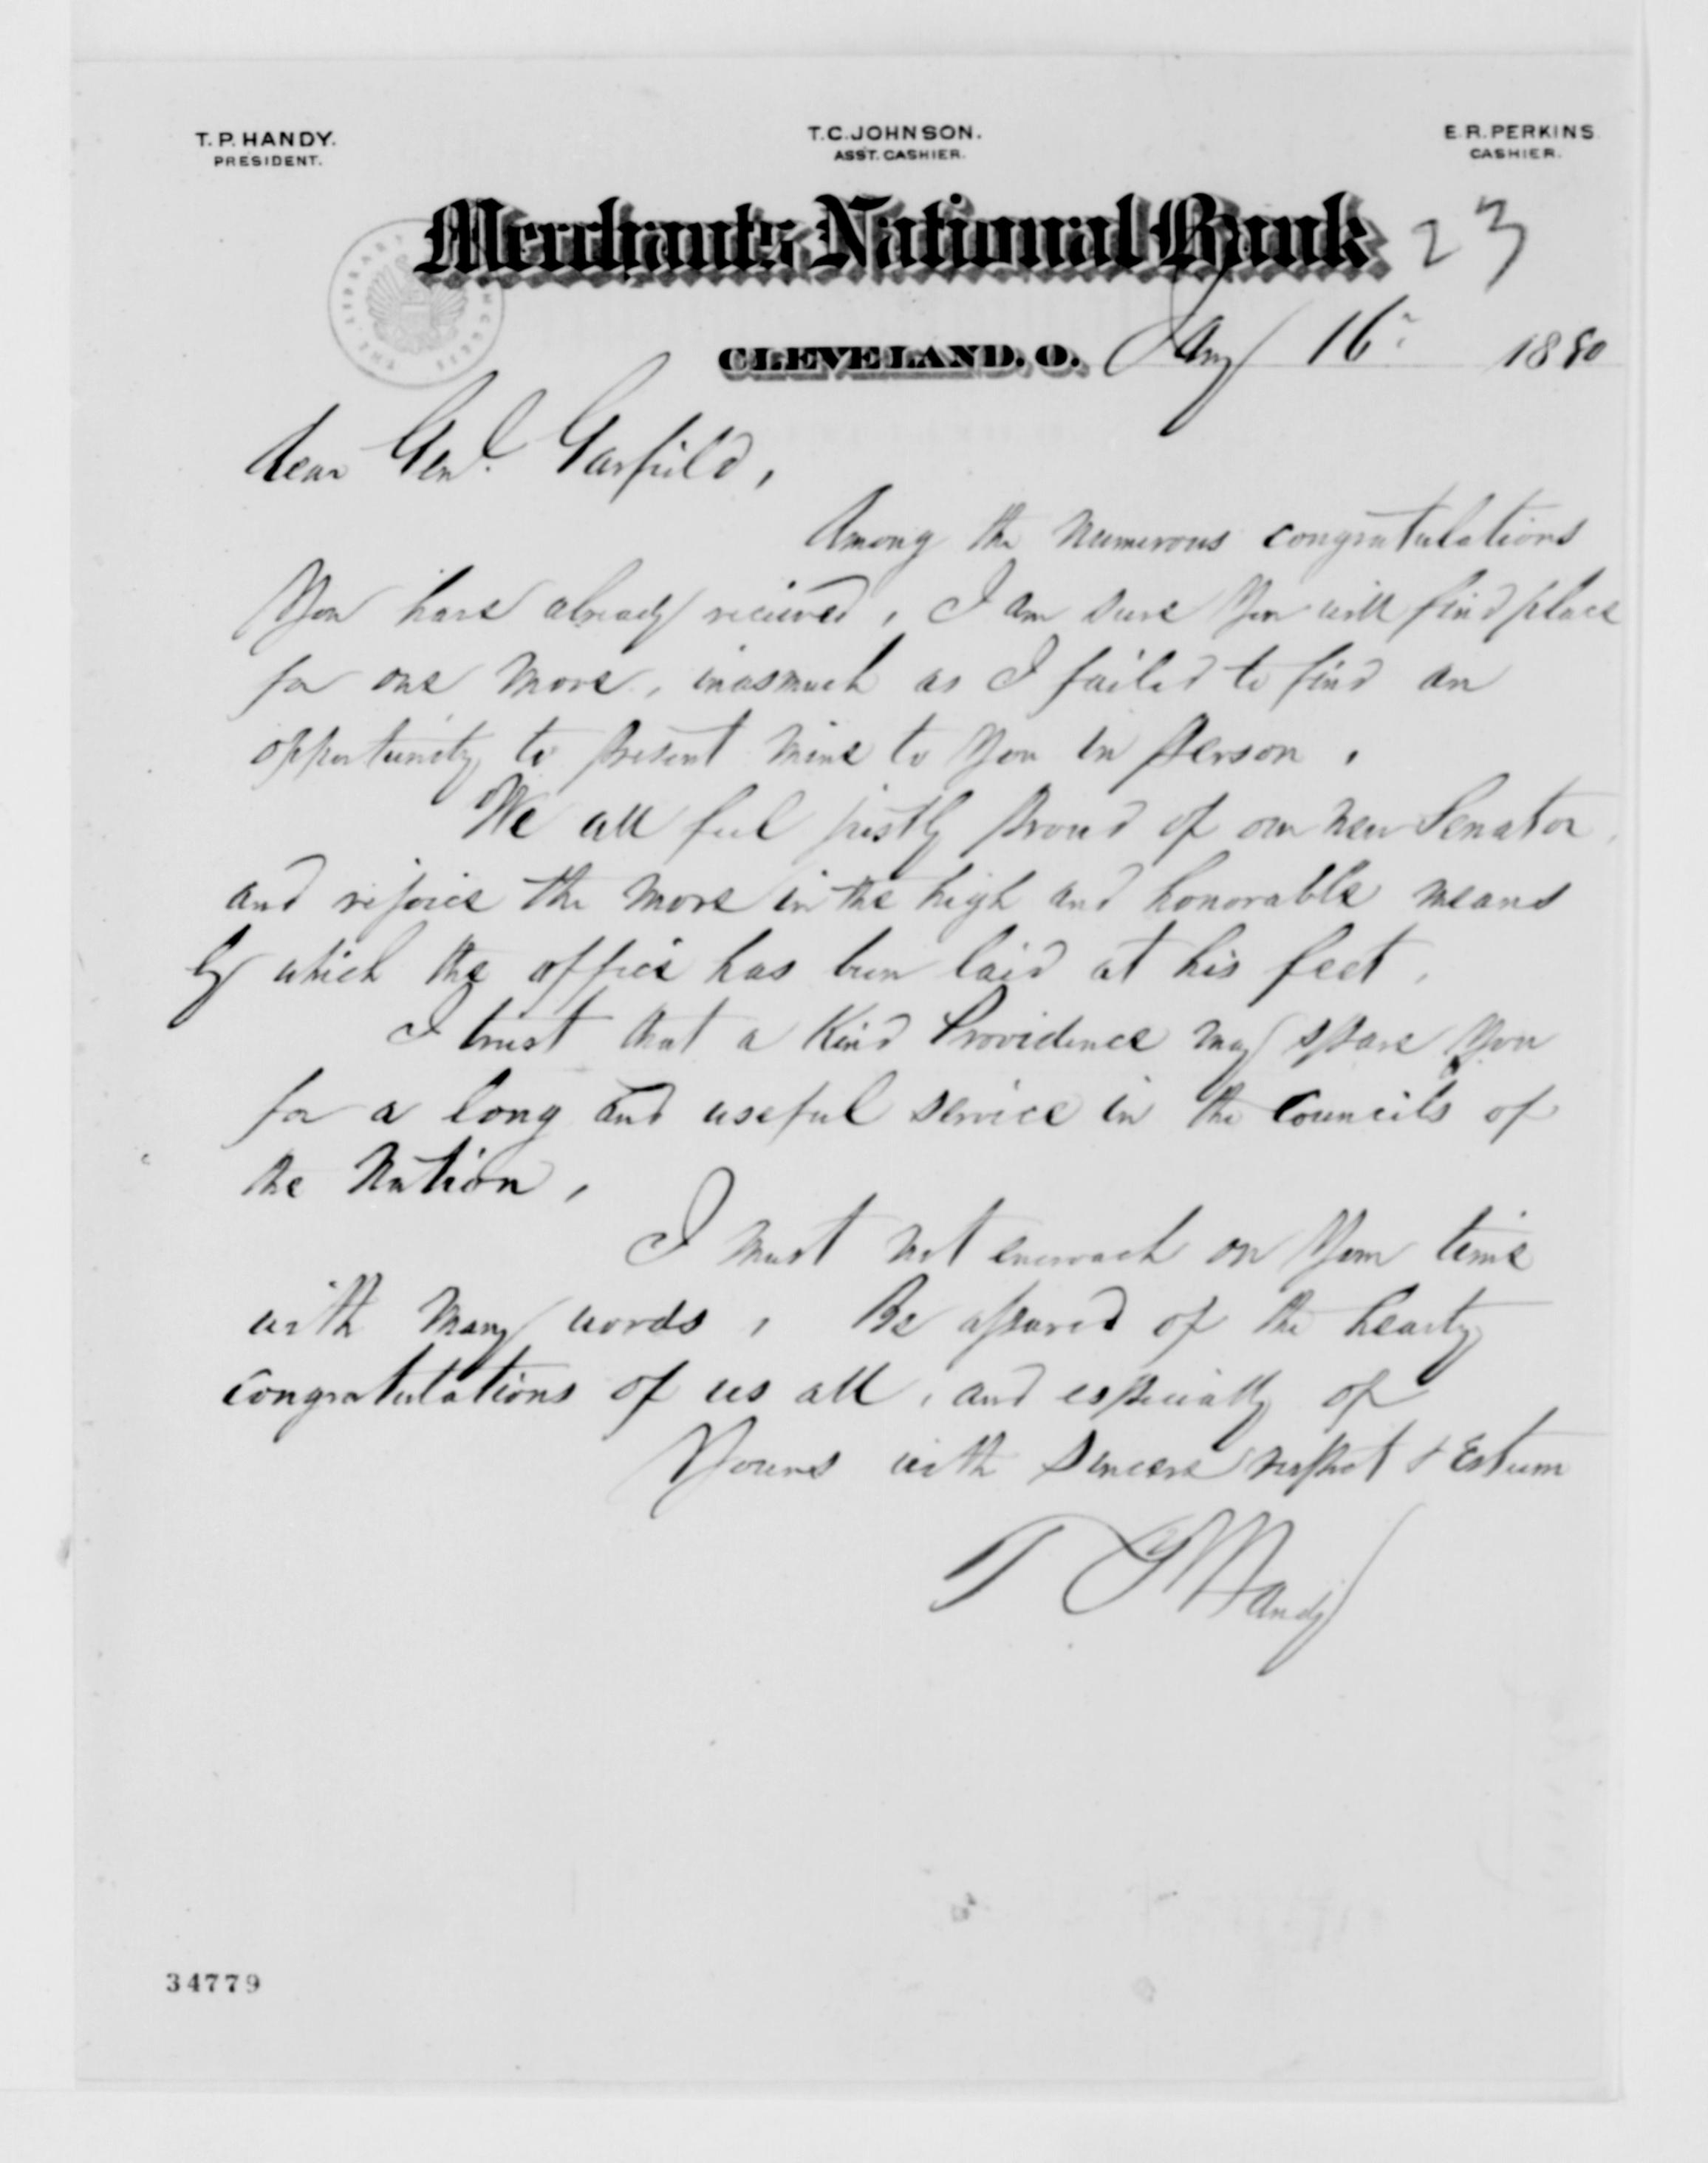 T. P. HANDY. T. C. JOHNSON. E. R. PERKINS.
PRESIDENT. ASST. CASHIER. CASHIER.
Merchants National Bank 23
CLEVELAND, O. Jany 16" 1880
Dear Genl. Garfield,
Among the numerous congratulations
you have already recieved, I am sure you will find place
for one more, inasmuch as I failed to find an
opportunity to present mine to you in person.
We all feel justly proud of our new Senator
and rejoice the more in the high and honorable means
by which the office has been laid at his feet.
I trust that a Kind Providence may spare you
for a long and useful service in the Councils of
the Nation.
I must not encroach on your time
with many words, Be assured of the hearty
congratulations of us all, and especially of
Yours with sincere respect & Esteem
T P Handy
34779